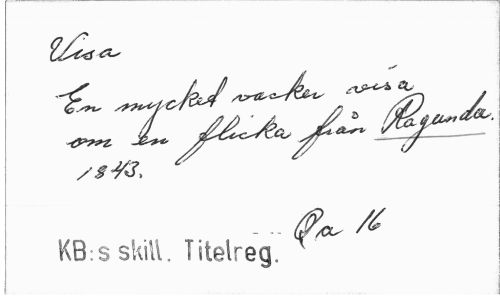 Visa
En mycket vacker visa
om en flicka från Ragunda.
1843.
Qa 16
KB:s skill. Titelreg.